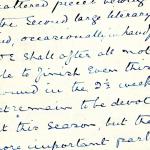 attered pieces
the second large literary
ed, occasionally in hand
we shall after all not
le to finish even this
ound in the 2½ week
t remain to be devot
at this season, but the
ore important part